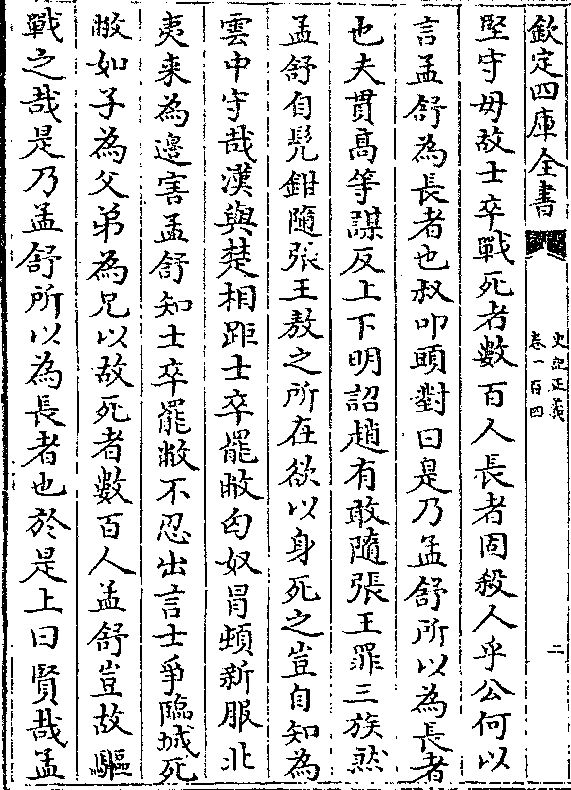 欽定四庫全書
史記正義
卷一百四
二
堅守毋故士卒戰死者數百人長者固殺人乎公何以
言孟舒為長者也叔叩頭對曰是乃孟舒所以為長者
也夫貫高等謀反上下明詔趙有敢隨張王罪三族然
孟舒自髡鉗隨張王敖之所在欲以身死之豈自知為
雲中守哉漢與楚相距士卒罷敝匈奴冐頓新服北
夷来為邊害孟舒知士卒罷敝不忍出言士爭臨城死
敵如子為父弟為兄以故死者數百人孟舒豈故驅
戰之哉是乃孟舒所以為長者也於是上曰賢哉孟